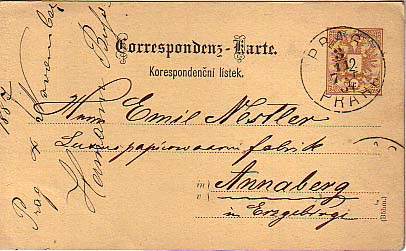 Correspondenz-Karte.
Korespondenční lístek.
PRAG
PRAHA
2
Herrn Emil Nestler
Luxuspapierwaarenfabrik
in
Annaberg
in Erzgebirge
(Böhm.)
Prag
November
Hermann